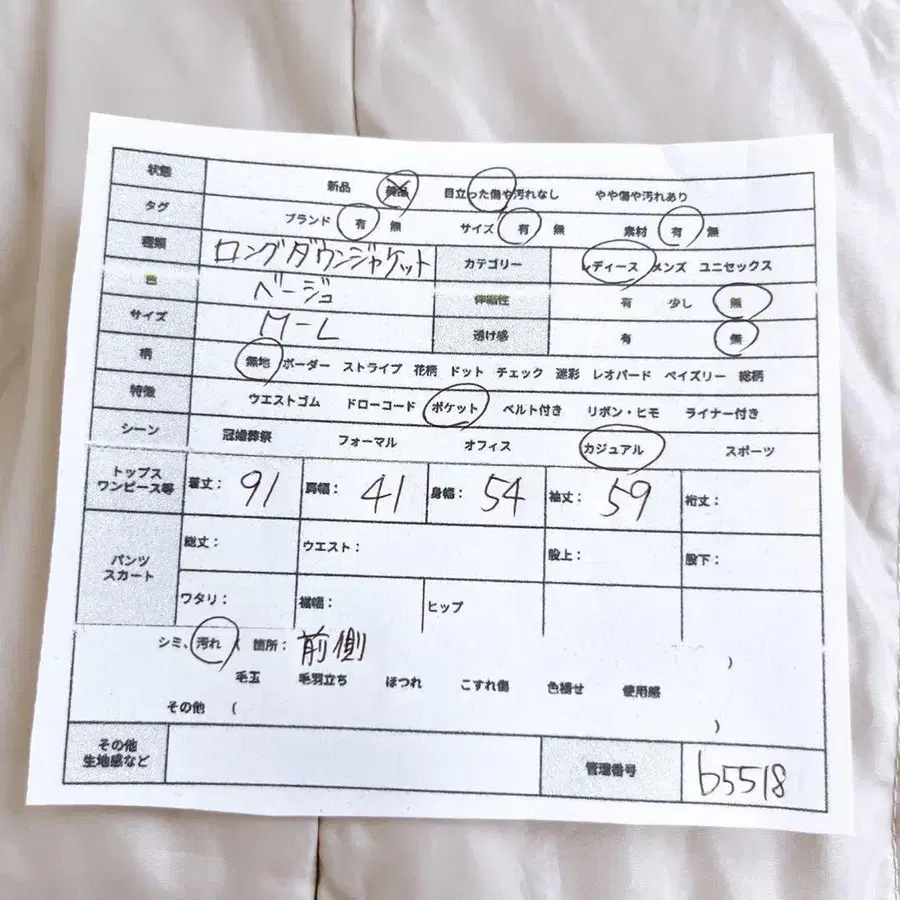 状態 新品 美品 目立った傷や汚れなし やや傷や汚れあり
タグ ブランド 有 無 サイズ 有 無 素材 有 無
種類 ロングダウンジャケット カテゴリー レディース メンズ ユニセックス
色 ベージュ 伸縮性 有 少し 無
サイズ M-L 透け感 有 無
柄 無地 ボーダー ストライプ 花柄 ドット チェック 迷彩 レオパード ペイズリー 総柄
特徴 ウエストゴム ドローコード ポケット ベルト付き リボン・ヒモ ライナー付き
シーン 冠婚葬祭 フォーマル オフィス カジュアル スポーツ
トップス
ワンピース等 着丈: 91 肩幅: 41 身幅: 54 袖丈: 59 裄丈:
パンツ
スカート 総丈: ウエスト: 股上: 股下:
ワタリ: 裾幅: ヒップ
シミ、汚れ ( 箇所: 前側 )
毛玉 毛羽立ち ほつれ こすれ傷 色褪せ 使用感
その他 ( )
その他
生地感など 管理番号 b5518